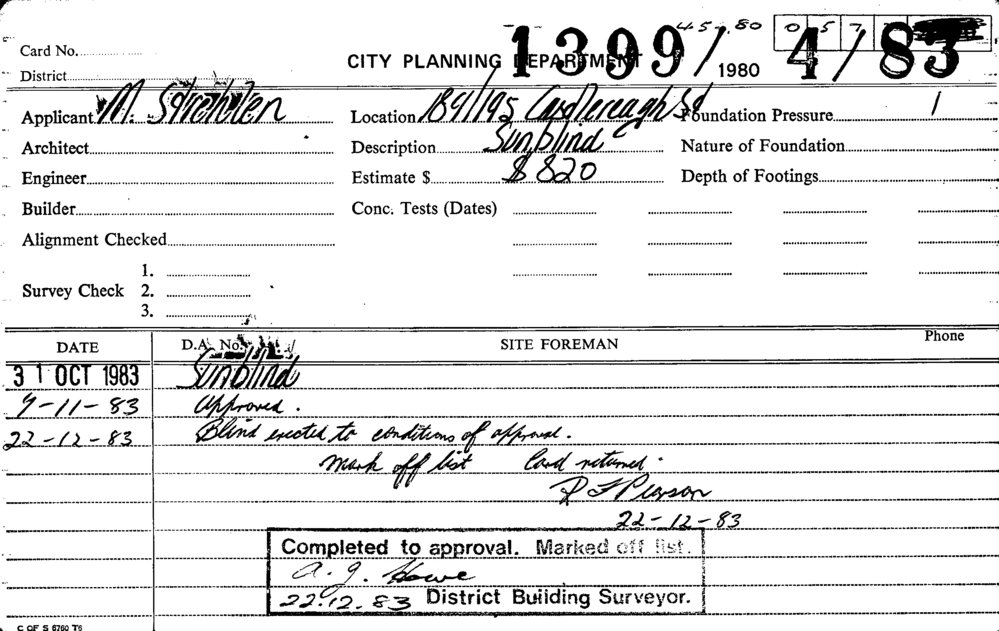 45 . 80 0 5 7
Card No.
CITY PLANNING DEPARTMENT 1399/1980 4/83
District
Applicant M.
Location 189/195 Castlereagh St
Foundation Pressure 1
Architect
Description Sunblind
Nature of Foundation
Engineer
Estimate $ $820
Depth of Footings
Builder
Conc. Tests (Dates)
Alignment Checked
1.
Survey Check 2.
3.
DATE D.A. No. SITE FOREMAN Phone
31 OCT 1983 Sunblind
9-11-83 Approved.
22-12-83 Blind erected to conditions of approval.
Mark off list Card returned.
R F Pearson
22-12-83
Completed to approval. Marked off list.
A. J. Howe
22.12.83 District Building Surveyor.
C OF S 6760 T6